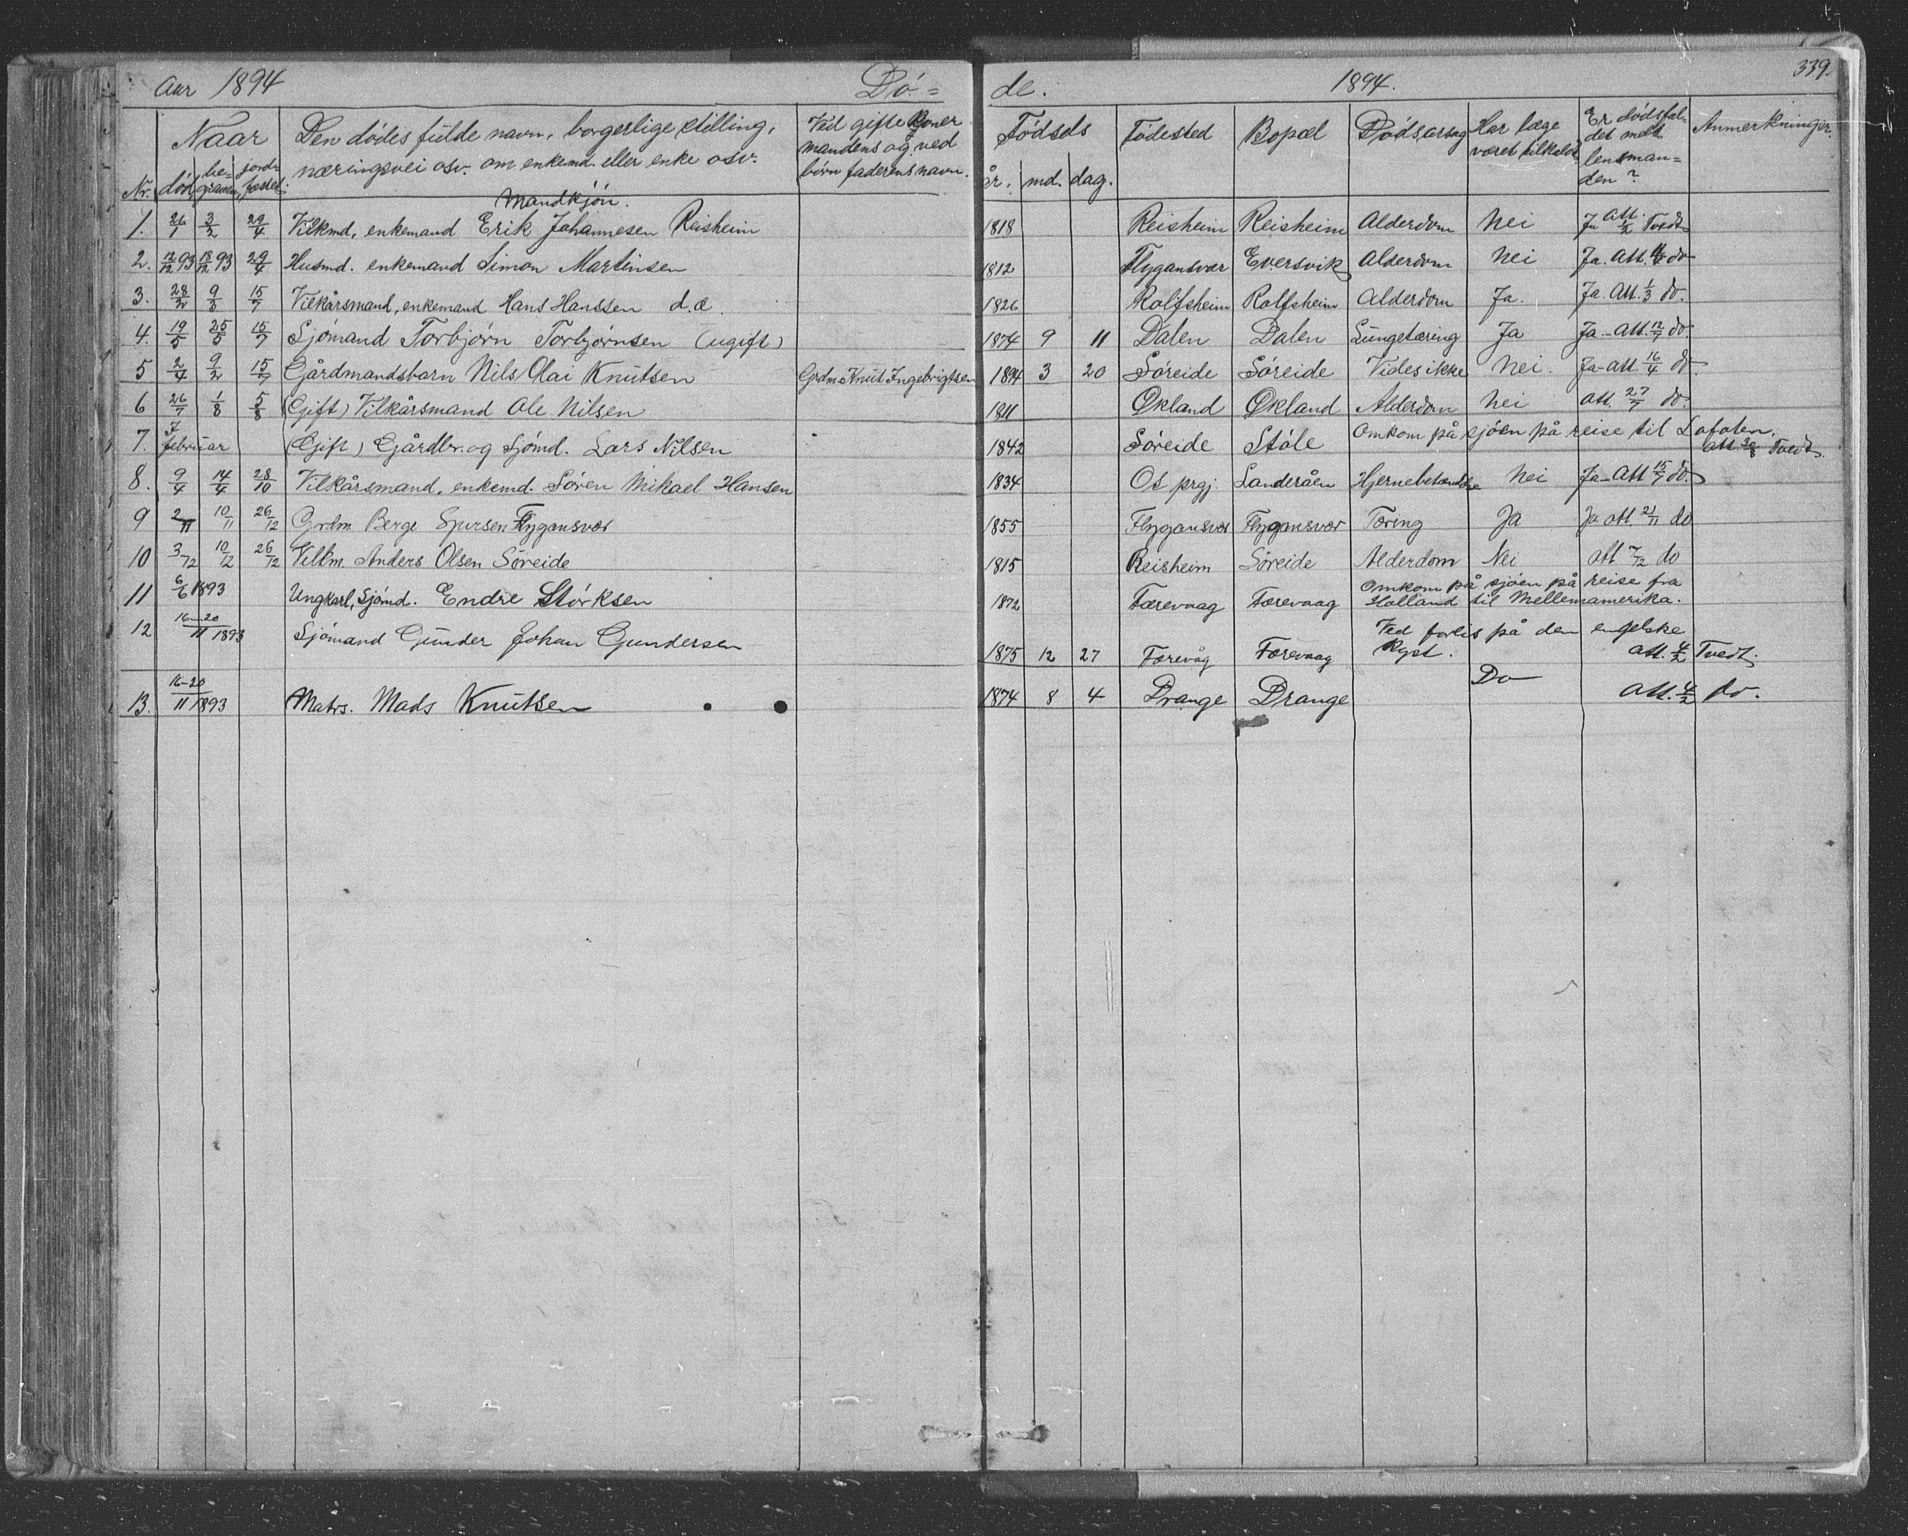 Aar 1894 Dø=
de. 1894. 339.
Naar
Nr. død, be-graven, jordfæstet.
Den dødes fulde navn, borgerlige stilling,
næringsvei osv. om enkemd. eller enke osv.
Ved gifte koner
mandens og ved
børn faderens navn.
Fødsels
år. md. dag.
Fødested Bopæl Dødsarsag
Har læge
været tilkaldt
Er dødsfal-
det meldt
lensman-
den?
Anmerkninger.
Mandkjøn.
1. 26/1 3/2 29/4 Vilkmd, enkemand Erik Johannesen Reisheim 1818 Reisheim Reisheim Alderdom Nei Ja att. 1/2 Tvedt
2. 12/12 93 18/12 93 29/4 Husmd. enkemand Simon Martinsen 1812 Flygansvær Eversvik Alderdom Nei Ja. Att. do
3. 28/2 9/3 15/7 Vilkårsmand, enkemand Hans Hanssen d.æ. 1826 Rolfsheim Rolfsheim Alderdom Ja. Ja. Att. 1/3 do.
4. 19/5 25/5 15/7 Sjømand Torbjørn Torbjørnsen (ugift) 1874 9 11 Dalen Dalen Lungetæring Ja Ja - Att. 12/7 do.
5 2/4 9/4 15/7 Gårdmandsbarn Nils Olai Knutsen Grdm. Knut Ingebrigtsen 1894 3 20 Søreide Søreide Vides ikke Nei. Ja - att. 16/4 do.
6 26/7 1/8 5/8 (Gift) Vilkårsmand Ole Nilsen 1811 Økland Økland Alderdom Nei att. 27/7 do.
7. I februar (Gift) Gårdbr. og Sjømd. Lars Nilsen 1842 Søreide Støle Omkom på sjøen på reise til Lofoten. att. 28/8 Tvedt
8. 9/4 14/4 28/10 Vilkårsmand, enkemd. Søren Mikael Hansen 1834 Os prgj. Landeråen Hjernebetændelse Nei Ja - Att 15/7 do.
9 2/11 10/11 26/12 Grdm Berge Sjursen Flygansvær 1855 Flygansvær Flygansvær Tæring Ja Ja att. 21/11 do
10 3/12 10/12 26/12 Vilkm. Anders Olsen Søreide 1815 Reisheim Søreide Alderdom Nei att 7/12 do
11 6/6 1893 Ungkarl, Sjømd. Endre Størksen 1872 Færevaag Færevaag Omkom på sjøen på reise fra
Holland til Mellemamerika.
12 16-20/11 1893 Sjømand Gunder Johan Gundersen 1875 12 27 Færevåg Færevaag Ved forlis på den engelske
Kyst. att. 4/2 Tvedt.
13. 16-20/11 1893 Matrs. Mads Knutsen 1874 8 4 Drange Drange Do att. 4/2 do.